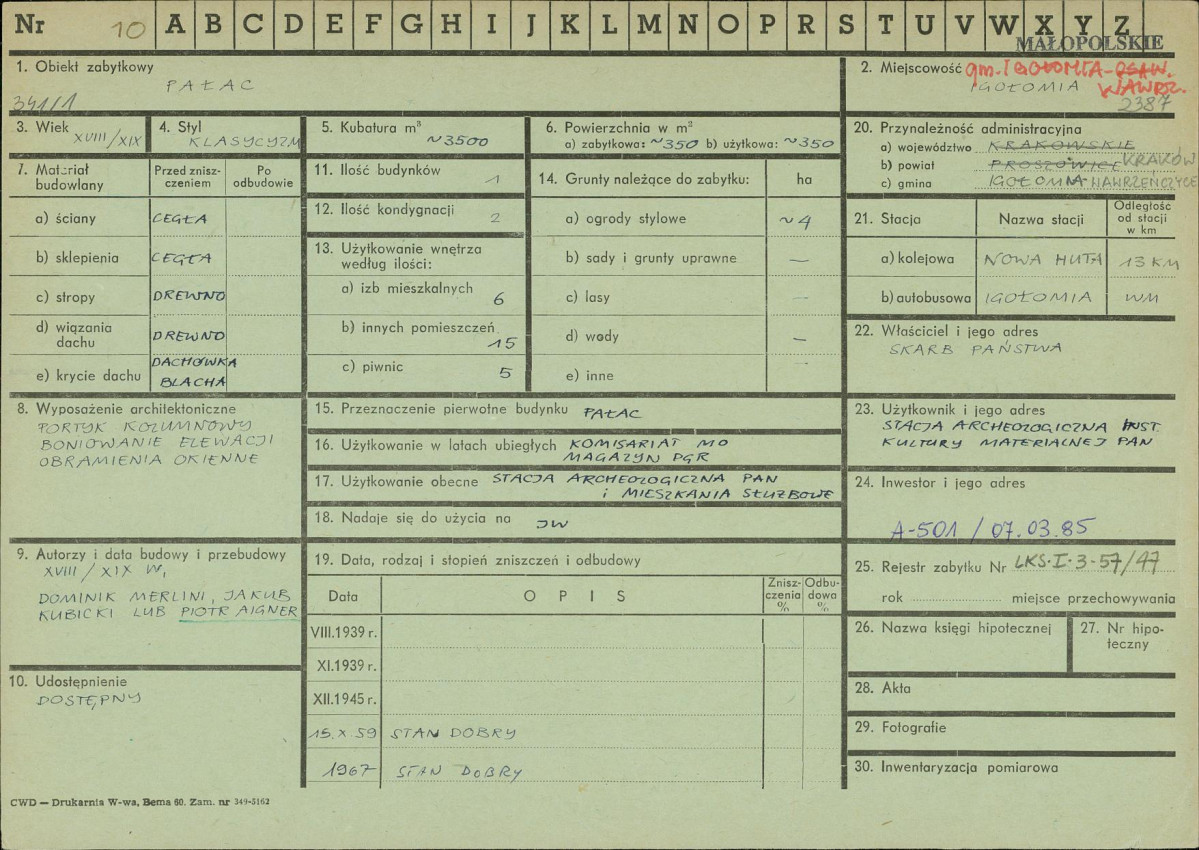 Nr 10 A B C D E F G H I J K L M N O P R S T U V W X Y Z
MAŁOPOLSKIE
1. Obiekt zabytkowy
PAŁAC
341/1
2. Miejscowość gm. IGOŁOMIA-
WAWRZ.
IGOŁOMIA
2387
3. Wiek XVIII/XIX
4. Styl
KLASYCYZM
5. Kubatura m³
~3500
6. Powierzchnia w m²
a) zabytkowa: ~350 b) użytkowa: ~350
7. Materiał budowlany
Przed zniszczeniem
Po odbudowie
a) ściany CEGŁA
b) sklepienia CEGŁA
c) stropy DREWNO
d) wiązania dachu DREWNO
e) krycie dachu DACHÓWKA
BLACHA
8. Wyposażenie architektoniczne
PORTYK KOLUMNOWY
BONIOWANIE ELEWACJI
OBRAMIENIA OKIENNE
9. Autorzy i data budowy i przebudowy
XVIII/XIX W,
DOMINIK MERLINI, JAKUB
KUBICKI LUB PIOTR AIGNER
10. Udostępnienie
DOSTĘPNY
11. Ilość budynków 1
12. Ilość kondygnacji 2
13. Użytkowanie wnętrza
według ilości:
a) izb mieszkalnych 6
b) innych pomieszczeń 15
c) piwnic 5
14. Grunty należące do zabytku: ha
a) ogrody stylowe ~4
b) sady i grunty uprawne —
c) lasy —
d) wody —
e) inne
15. Przeznaczenie pierwotne budynku PAŁAC
16. Użytkowanie w latach ubiegłych KOMISARIAT MO
MAGAZYN PGR
17. Użytkowanie obecne STACJA ARCHEOLOGICZNA PAN
i MIESZKANIA SŁUŻBOWE
18. Nadaje się do użycia na JW
19. Data, rodzaj i stopień zniszczeń i odbudowy
Data
O P I S
Zniszczenia %
Odbudowa %
VIII.1939 r.
XI.1939 r.
XII.1945 r.
15.X 59 STAN DOBRY
1967 STAN DOBRY
20. Przynależność administracyjna
a) województwo KRAKOWSKIE
b) powiat PROSZOWICE KRAKÓW
c) gmina IGOŁOMIA WAWRZEŃCZYCE
21. Stacja
Nazwa stacji
Odległość od stacji w km
a) kolejowa NOWA HUTA 13 KM
b) autobusowa IGOŁOMIA WM
22. Właściciel i jego adres
SKARB PAŃSTWA
23. Użytkownik i jego adres
STACJA ARCHEOLOGICZNA INST.
KULTURY MATERIALNEJ PAN
24. Inwestor i jego adres
A-501 / 07.03.85
25. Rejestr zabytku Nr LKS.I-3-57/47
rok miejsce przechowywania
26. Nazwa księgi hipotecznej
27. Nr hipoteczny
28. Akta
29. Fotografie
30. Inwentaryzacja pomiarowa
CWD — Drukarnia W-wa, Bema 60. Zam. nr 349-5162